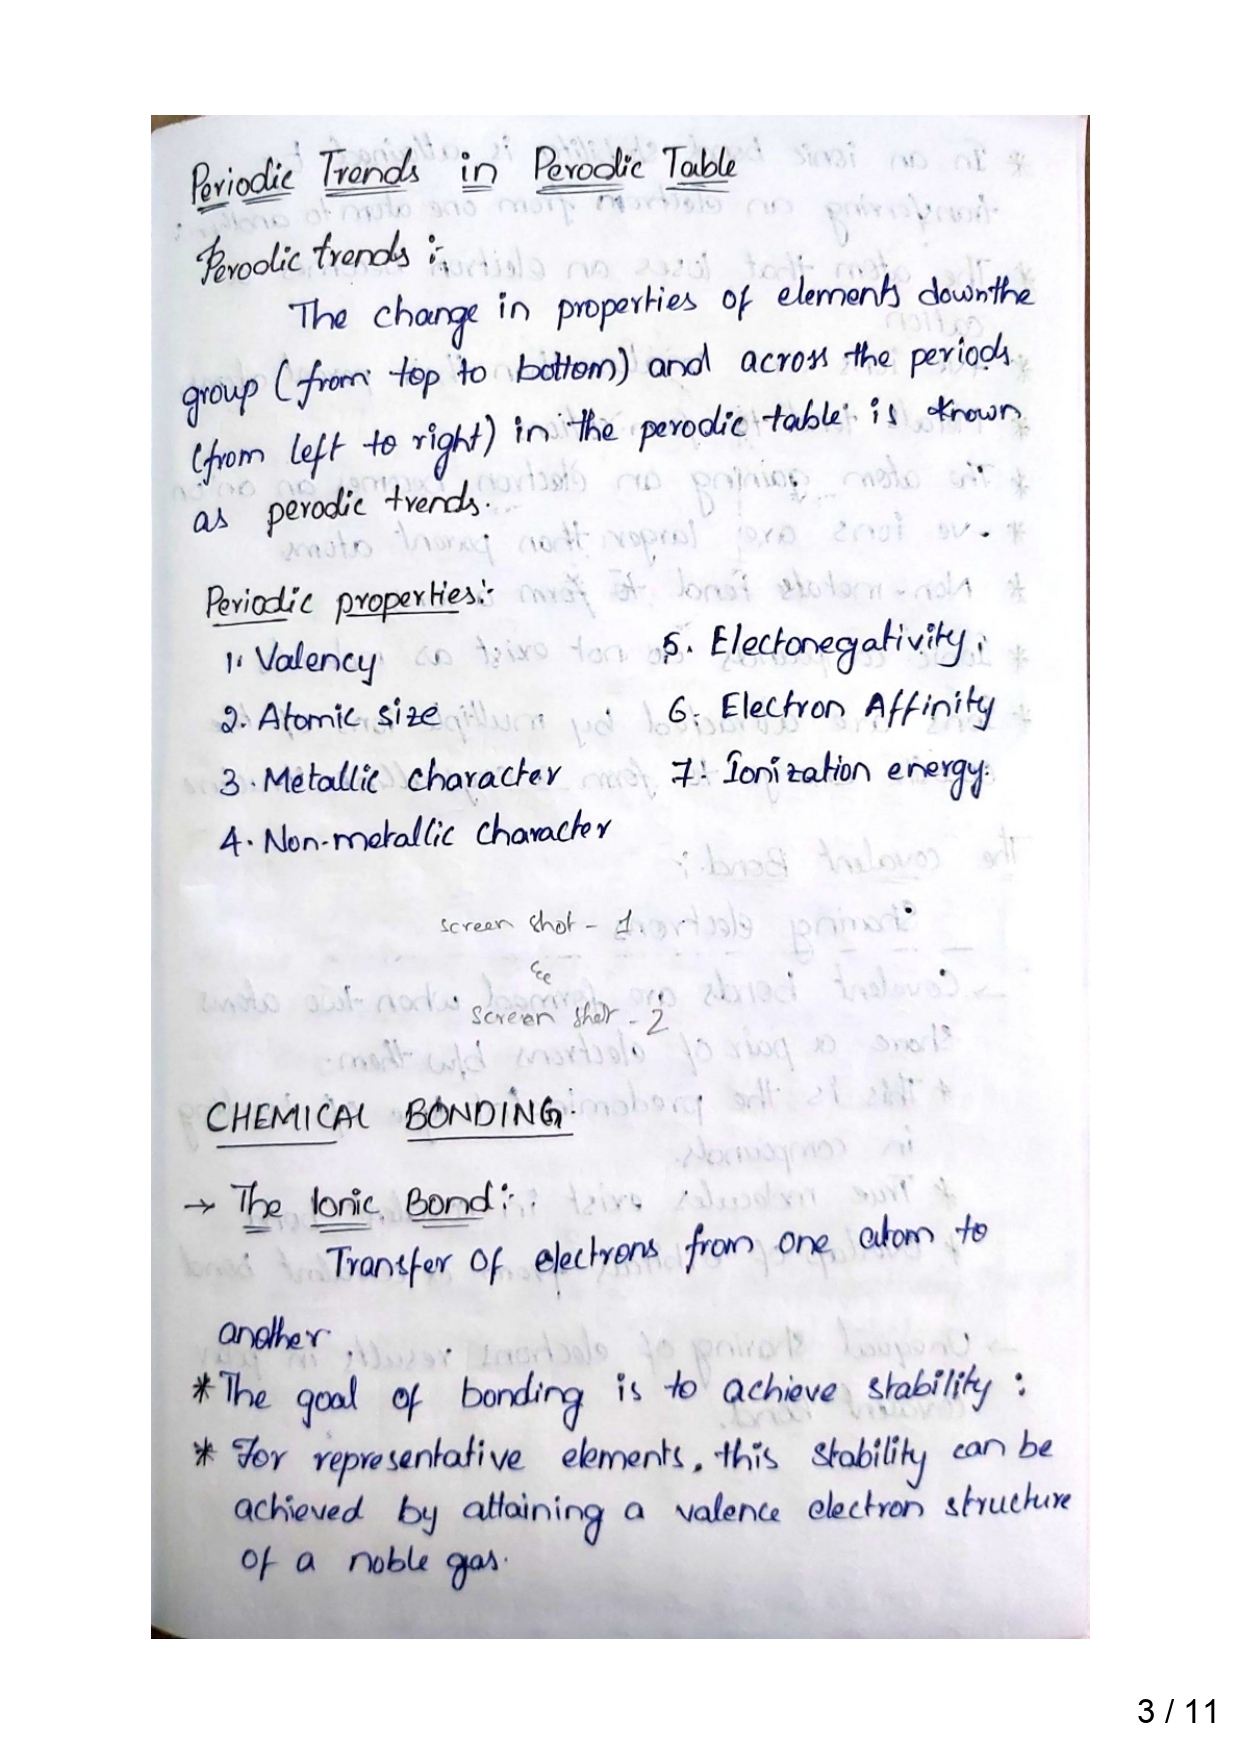 Periodic Trends in Perodic Table
Perodic trends :-
The change in properties of elements down the
group (from top to bottom) and across the periods
(from left to right) in the perodic table is known
as perodic trends.
Periodic properties:-
1. Valency
2. Atomic size
3. Metallic character
4. Non-metallic character
5. Electonegativity.
6. Electron Affinity
7. Ionization energy.
screen shot - 1
&
screen shot - 2
CHEMICAL BONDING.
→ The Ionic Bond :-
Transfer of electrons from one atom to
another.
* The goal of bonding is to achieve stability :
* For representative elements, this stability can be
achieved by attaining a valence electron structure
of a noble gas.
3 / 11